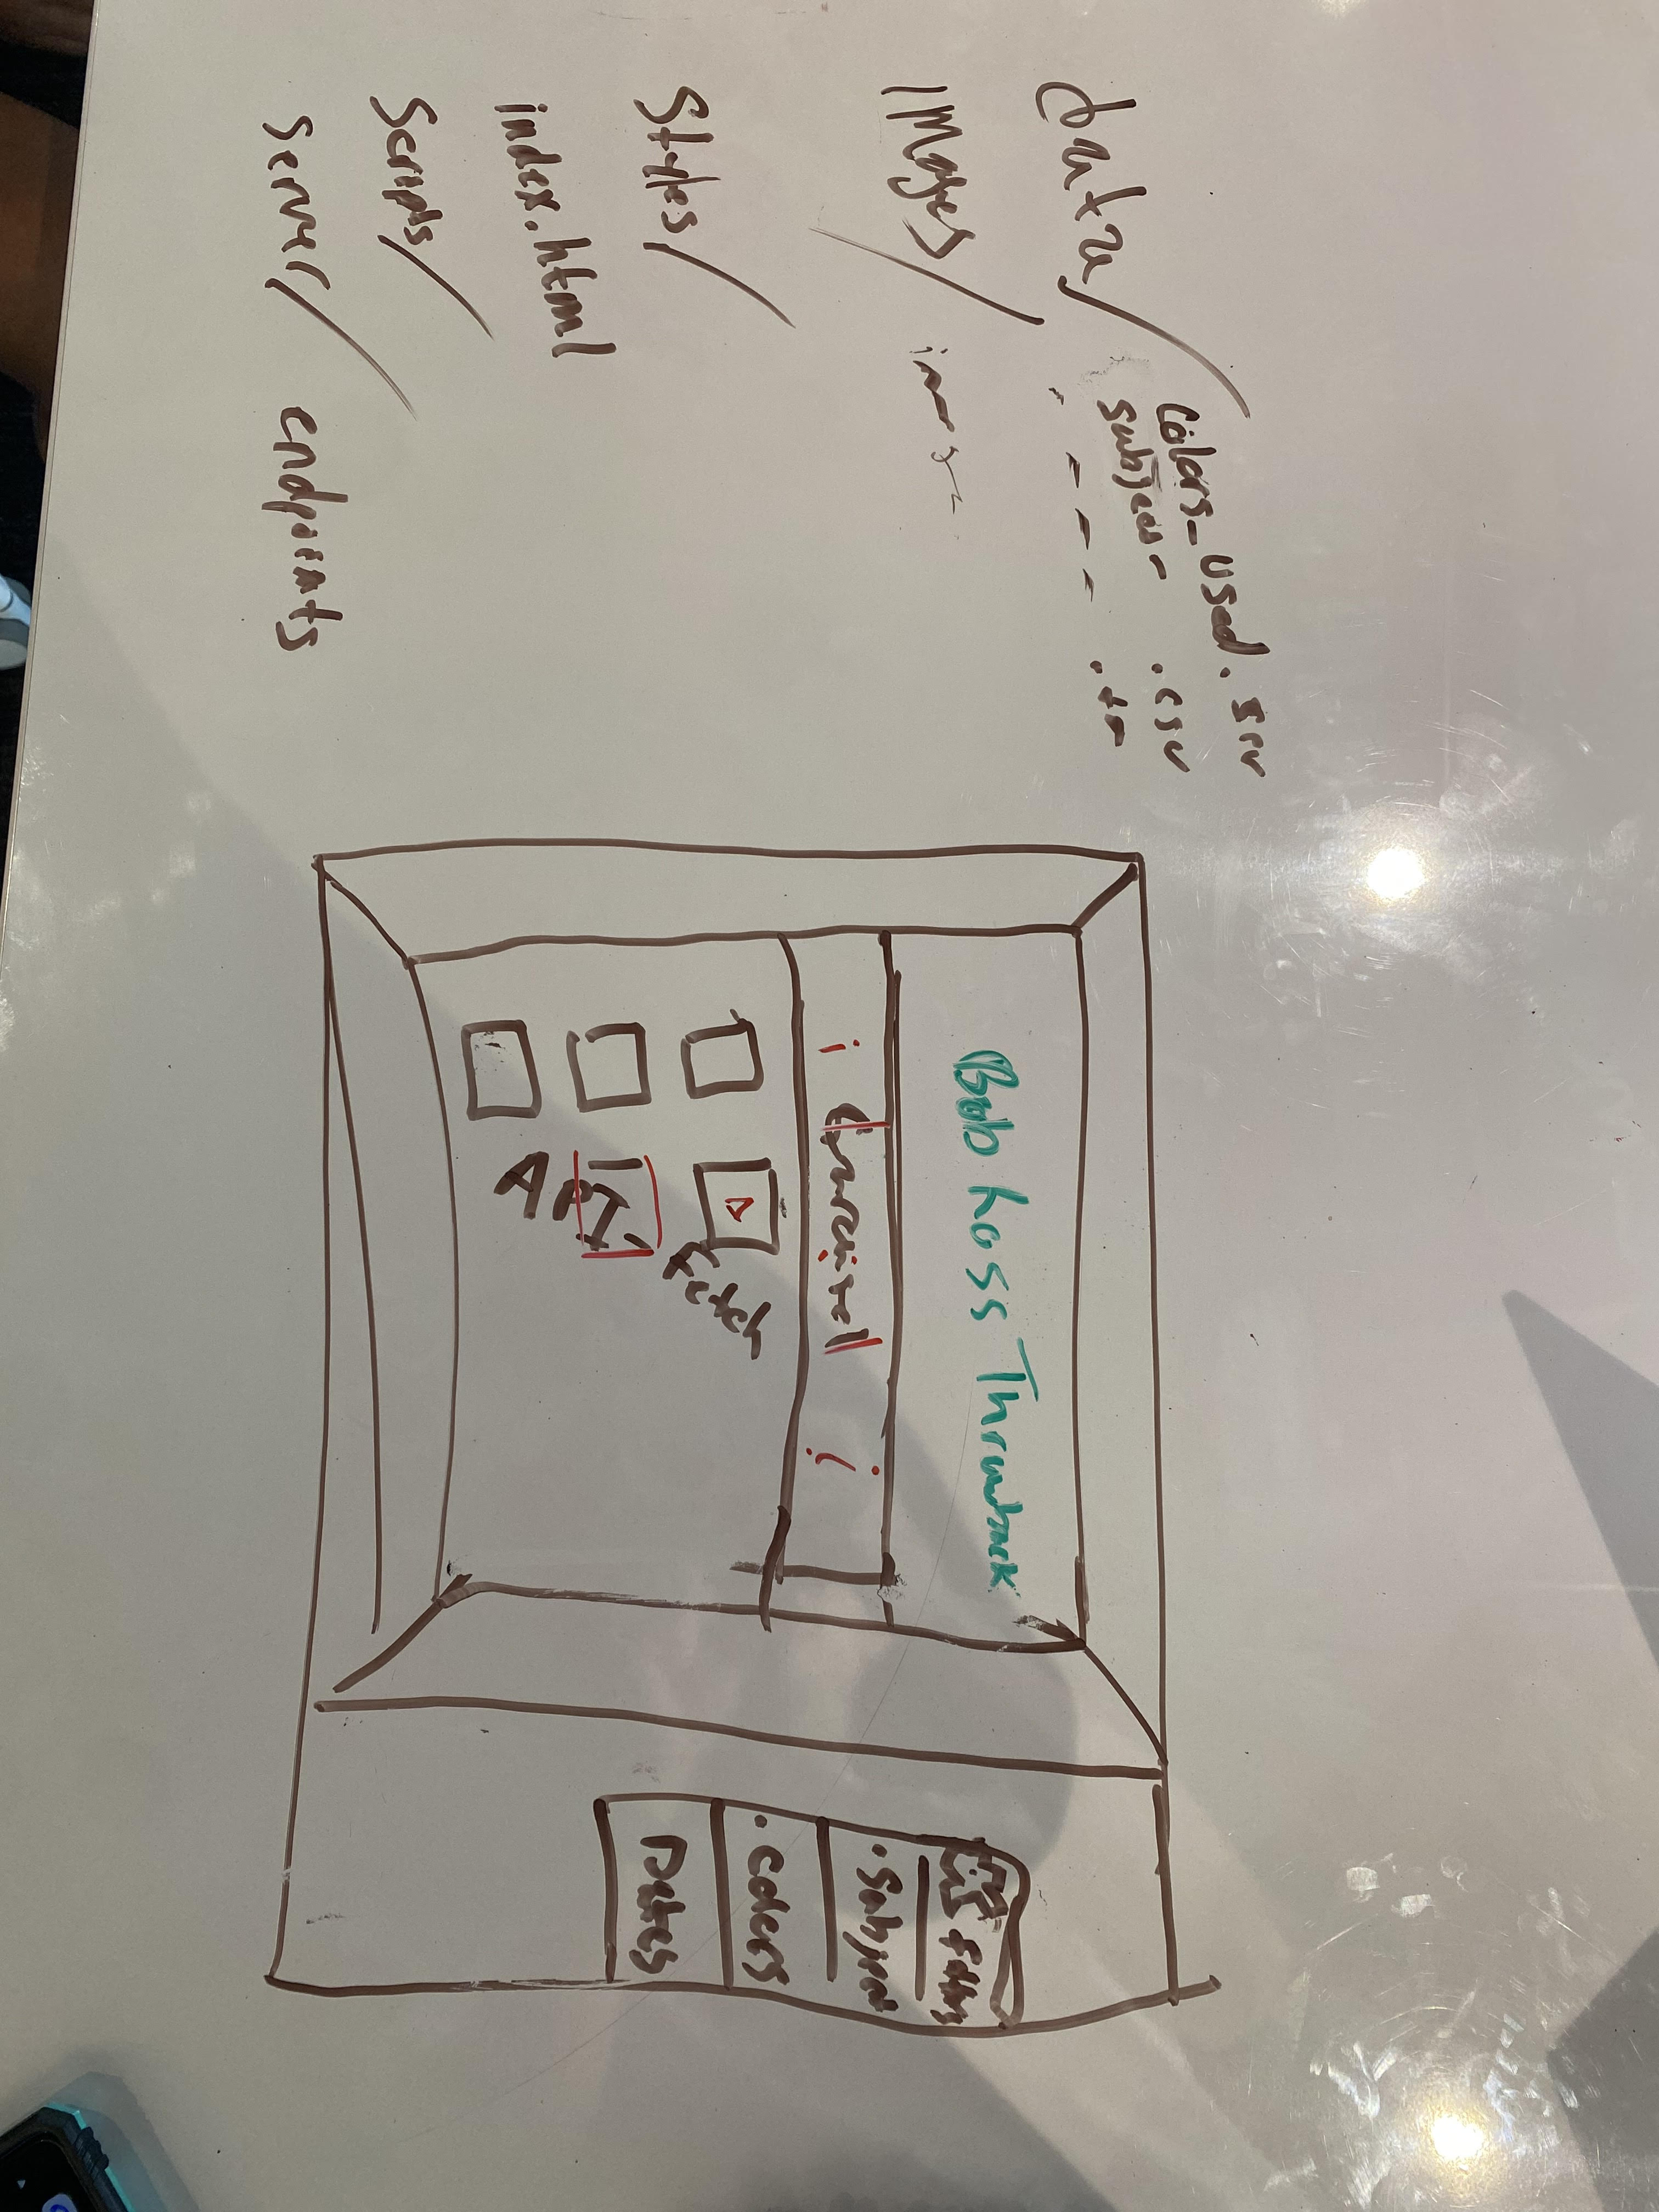 data/
Colors_used.srv
subject- .csv
Images/
Styles/
index.html
Scripts/
server/ endpoints
Bob Ross Throwback
fetch
API
.Subject
.colors
Dates